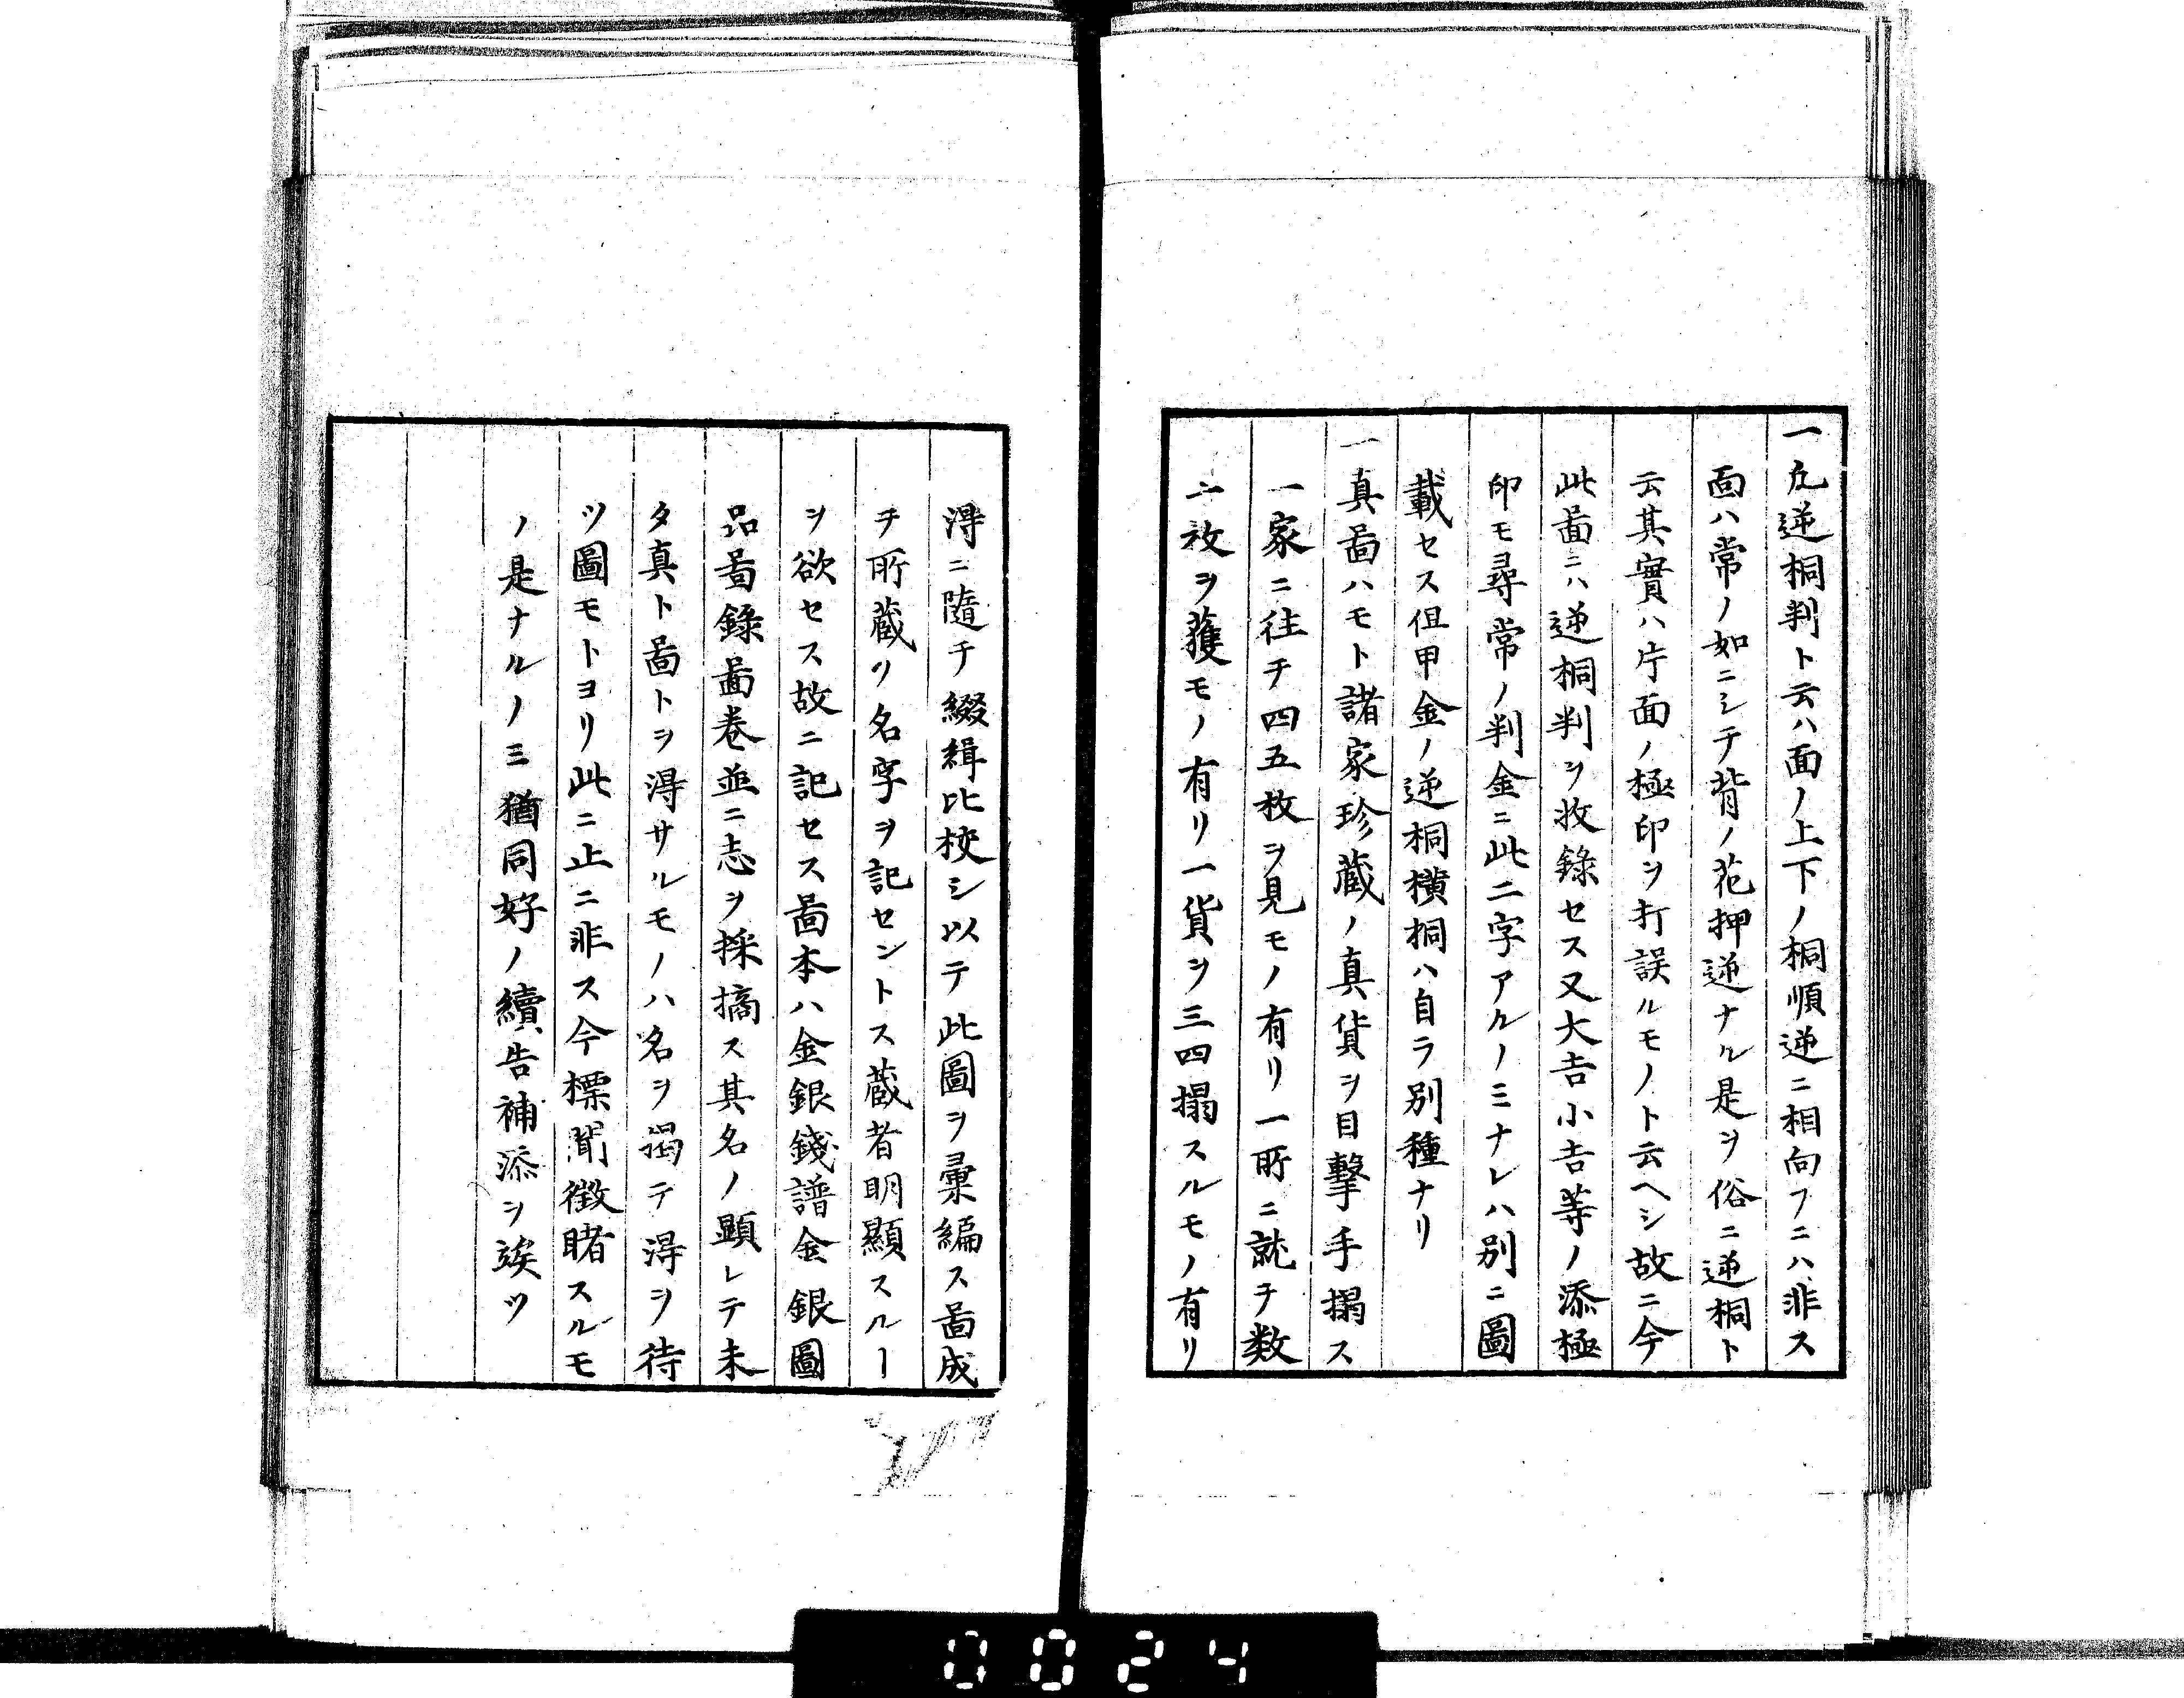 一凡逆桐判ト云ハ面ノ上下ノ桐順逆ニ相向フニハ非ス
面ハ常ノ如ニシテ背ノ花押逆ナル是ヲ俗ニ逆桐ト
云其實ハ片面ノ極印ヲ打誤ルモノト云ヘシ故ニ今
此啚ニハ逆桐判ヲ收錄セス又大吉小吉等ノ添極
印モ尋常ノ判金ニ此二字アルノミナレハ別ニ圖
載セス但甲金ノ逆桐橫桐ハ自ラ別種ナリ
一真啚ハモト諸家珍藏ノ真貨ヲ目擊手搨ス
一家ニ往テ四五枚ヲ見モノ有リ一所ニ就テ数
十枚ヲ獲モノ有リ一貨ヲ三四搨スルモノ有リ
淂ニ隨テ綴緝比校シ以テ此圖ヲ彙編ス啚成
テ所藏ノ名字ヲ記セントス藏者明顯スルヿ
ヲ欲セス故ニ記セス啚本ハ金銀錢譜金銀圖
品啚錄啚卷並ニ志ヲ採摘ス其名ノ顕レテ未
タ真ト啚トヲ淂サルモノハ名ヲ揭テ淂ヲ待
ツ圖モトヨリ此ニ止ニ非ス今標聞徵睹スルモ
ノ是ナルノミ猶同好ノ續告補添ヲ竢ツ
0024